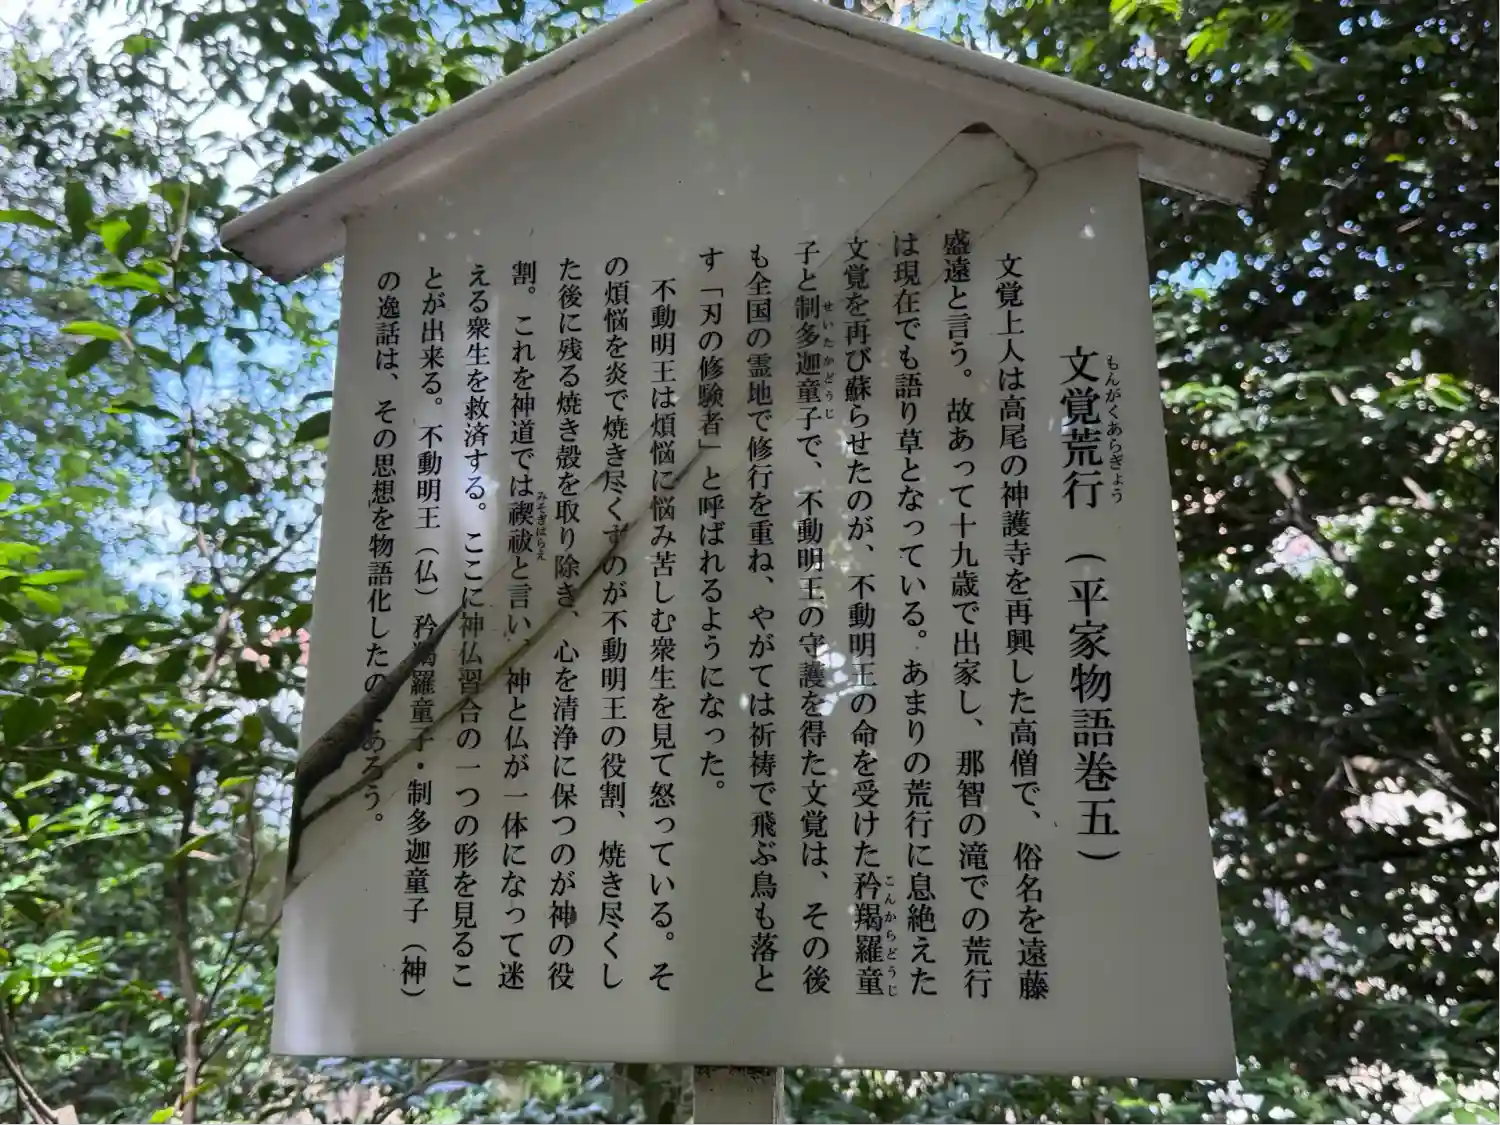 文覚荒行　（平家物語巻五）
もんがくあらぎょう
文覚上人は高尾の神護寺を再興した高僧で、俗名を遠藤
盛遠と言う。故あって十九歳で出家し、那智の滝での荒行
は現在でも語り草となっている。あまりの荒行に息絶えた
文覚を再び蘇らせたのが、不動明王の命を受けた矜羯羅童
こんからどうじ
子と制多迦童子で、不動明王の守護を得た文覚は、その後
せいたかどうじ
も全国の霊地で修行を重ね、やがては祈祷で飛ぶ鳥も落と
す「刃の修験者」と呼ばれるようになった。
不動明王は煩悩に悩み苦しむ衆生を見て怒っている。そ
の煩悩を炎で焼き尽くすのが不動明王の役割、焼き尽くし
た後に残る焼き殻を取り除き、心を清浄に保つのが神の役
割。これを神道では禊祓と言い、神と仏が一体になって迷
みそぎはらえ
える衆生を救済する。ここに神仏習合の一つの形を見るこ
とが出来る。不動明王（仏）矜羯羅童子・制多迦童子（神）
の逸話は、その思想を物語化したのであろう。